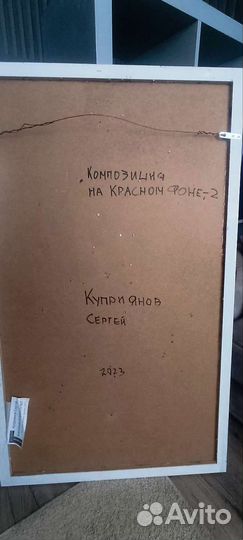 Композиция
на красном фоне,-2
Куприянов
Сергей
2023
Avito